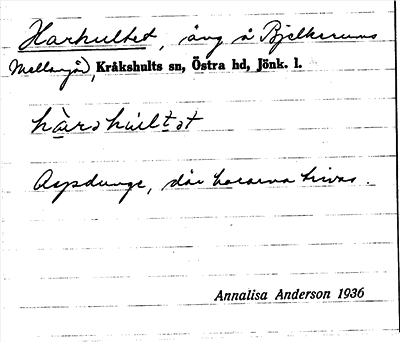 Harhultet, äng å Bjelkerums
Mellangård, Kråkshults sn, Östra hd, Jönk. l.
hàrəhùltət
Aspdunge, där hararna trivas.
Annalisa Anderson 1936